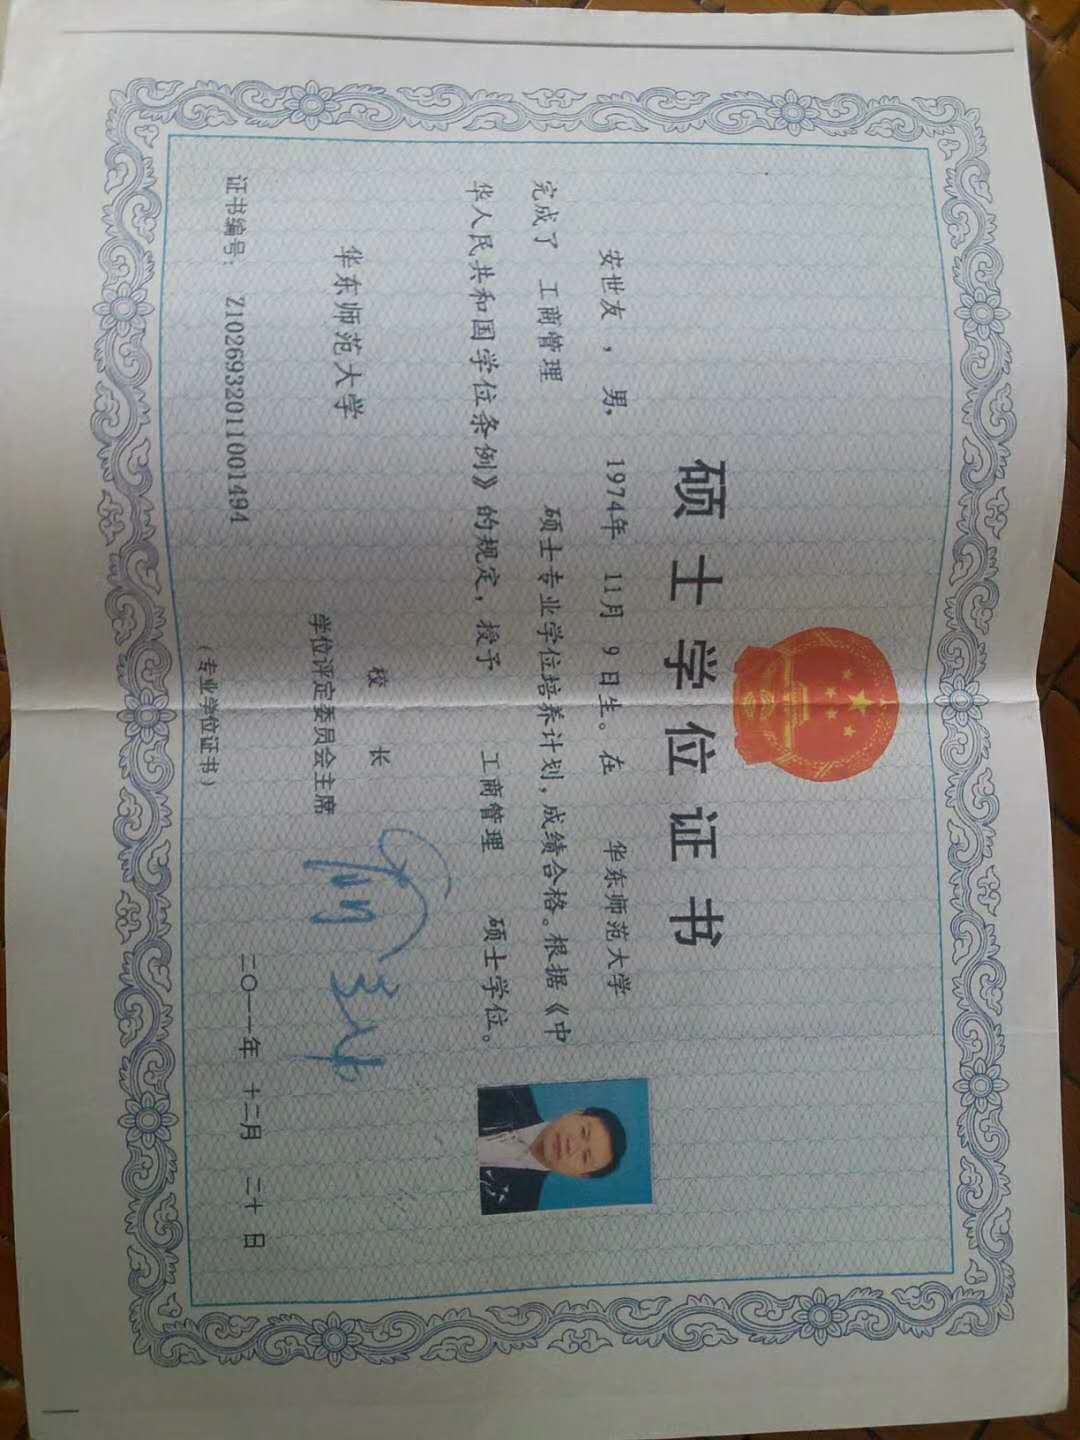 硕士学位证书
安世友，男，1974年 11月 9日生。在 华东师范大学
完成了 工商管理 硕士专业学位培养计划，成绩合格。根据《中
华人民共和国学位条例》的规定，授予 工商管理 硕士学位。
华东师范大学
校 长
学位评定委员会主席
证书编号：Z1026932011001494
二〇一一年 十二月 二十 日
（专业学位证书）